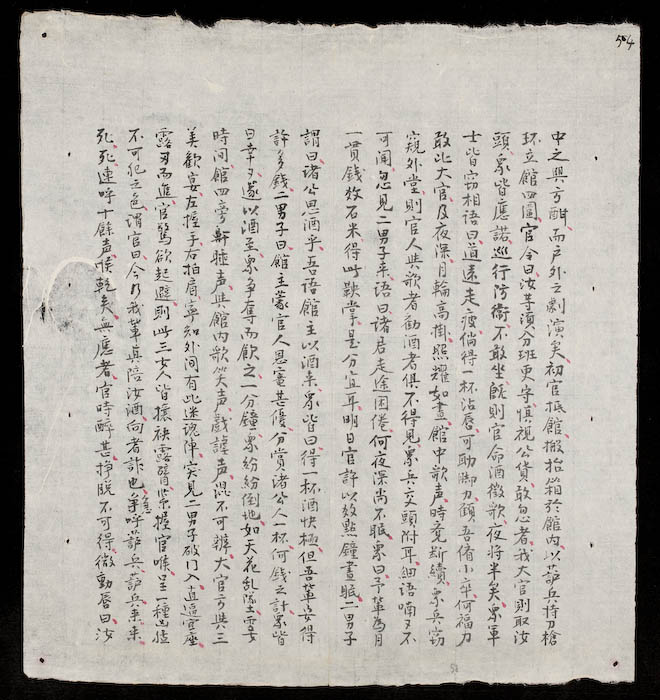 504
中之興方酣而戶外之劇演矣初官抵館搬抬箱於館內以葫兵持刀槍
环立館四圍官令曰汝等須分班更守慎視公貨敢怠者我大官則取汝
頭眾皆應諾巡行防衛不敢坐既則官命酒徵歌夜將半矣眾軍
士皆窃相語曰道遠走疲倘得一杯沾唇可助脚力顧吾儕小卒何福力
敢比大官及夜深月輪高掛照耀如晝館中歌声時竟断續眾兵窃
窺外堂則官人與歌者勸酒者俱不得見眾兵交頭附耳細語喃々不
可聞忽見二男子来语曰諸君走途困倦何夜深尚不眠眾曰予輩為月
一貫錢数石米得此鞅掌是分宜耳明日官許以数點鐘晝眠二男子
謂曰诸公思酒乎吾語館主以酒来眾皆曰得一杯酒快極但吾輩安得
許多錢二男子曰館主蒙官人恩寵甚優分賞諸公人一杯何錢之計眾皆
曰幸々遂以酒至眾争奪而飲之一分鐘眾紛紛倒地如天花亂墜霎
時间館四旁鼾睡声與館内歌笑声戲謔声混不可辨大官方與三
美歡宴左握手右拍肩寧知外间有此迷魂陣突見二男子破门入直逼官座
露刃而進官驚欲起避則此三女人皆攘袂露臂紧握官喉呈一種凶恶
不可犯之色謂官曰今乃我輩真陪汝酒向者詐也官急呼葫兵葫兵来来
死死連呼十餘声喉乾矣無應者官時醉甚掙脱不可得微動唇曰汝